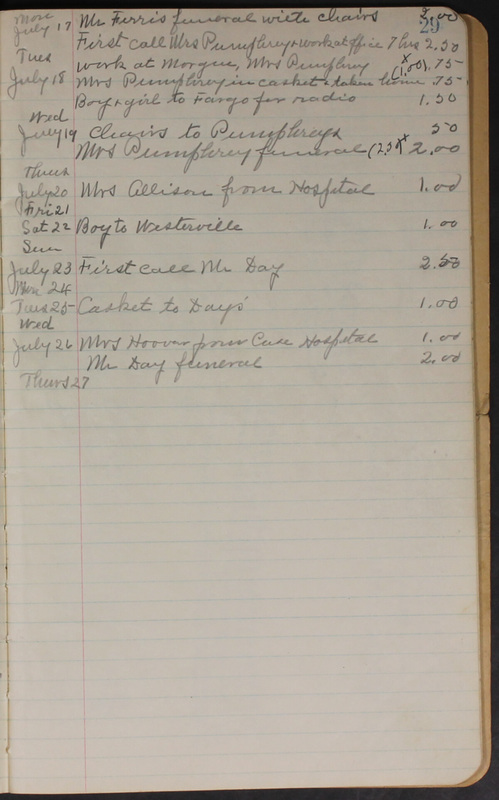 29
Mon
July 17 Mr Ferris funeral with chairs 2.00
First call Mrs Pumphrey + work at office 7 hrs 2.50
Tues work at Morgue, Mrs Pumphrey x(1.00) .75
July 18 Mrs Pumphrey in casket + taken home .75
Boy + girl to Fargo for radio 1.50
Wed
July 19 Chairs to Pumphreys 50
Mrs Pumphrey funeral (2.50)x 2.00
Thurs
July 20 Mrs Allison from Hospital 1.00
Fri 21
Sat 22 Boy to Westerville 1.00
Sun
July 23 First call Mr Day 2.50
Mon 24
Tues 25 Casket to Days' 1.00
Wed
July 26 Mrs Hoover from Case Hospital 1.00
Mr Day funeral 2.00
Thurs 27